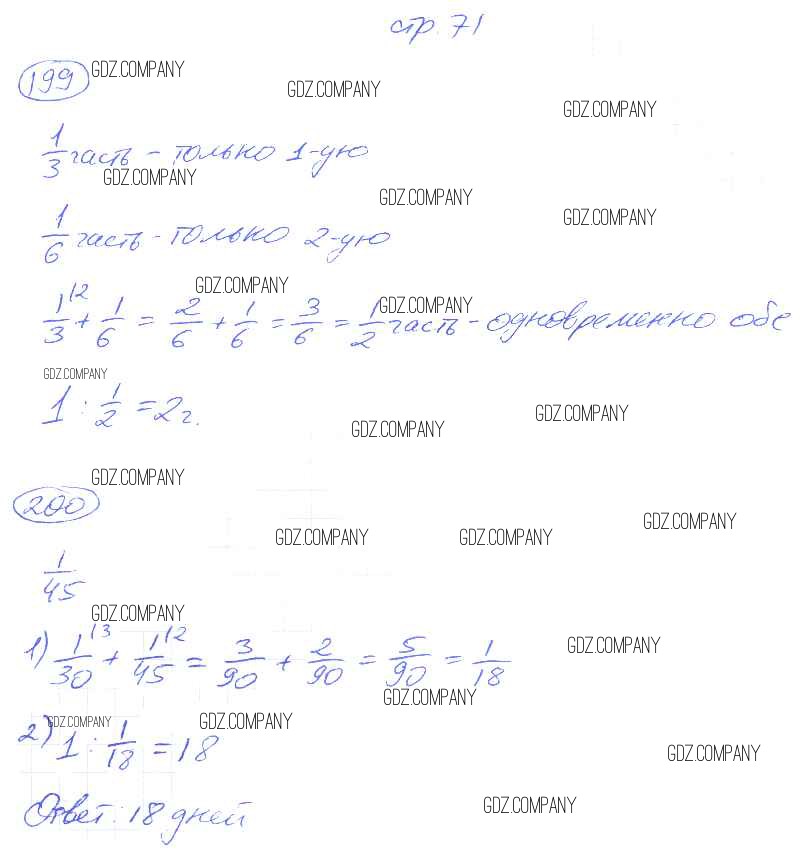 стр. 71
199 GDZ.COMPANY
GDZ.COMPANY
GDZ.COMPANY
1/3 часть - только 1-ую
GDZ.COMPANY
GDZ.COMPANY
GDZ.COMPANY
1/6 часть - только 2-ую
GDZ.COMPANY
GDZ.COMPANY
1/3 |2 + 1/6 = 2/6 + 1/6 = 3/6 = 1/2 часть - одновременно обе
GDZ.COMPANY
1 : 1/2 = 2 г.
GDZ.COMPANY
GDZ.COMPANY
GDZ.COMPANY
200
GDZ.COMPANY
GDZ.COMPANY
GDZ.COMPANY
1/45
GDZ.COMPANY
1) 1/30 |3 + 1/45 |2 = 3/90 + 2/90 = 5/90 = 1/18
GDZ.COMPANY
GDZ.COMPANY
GDZ.COMPANY
GDZ.COMPANY
2) 1 : 1/18 = 18
GDZ.COMPANY
Ответ: 18 дней
GDZ.COMPANY